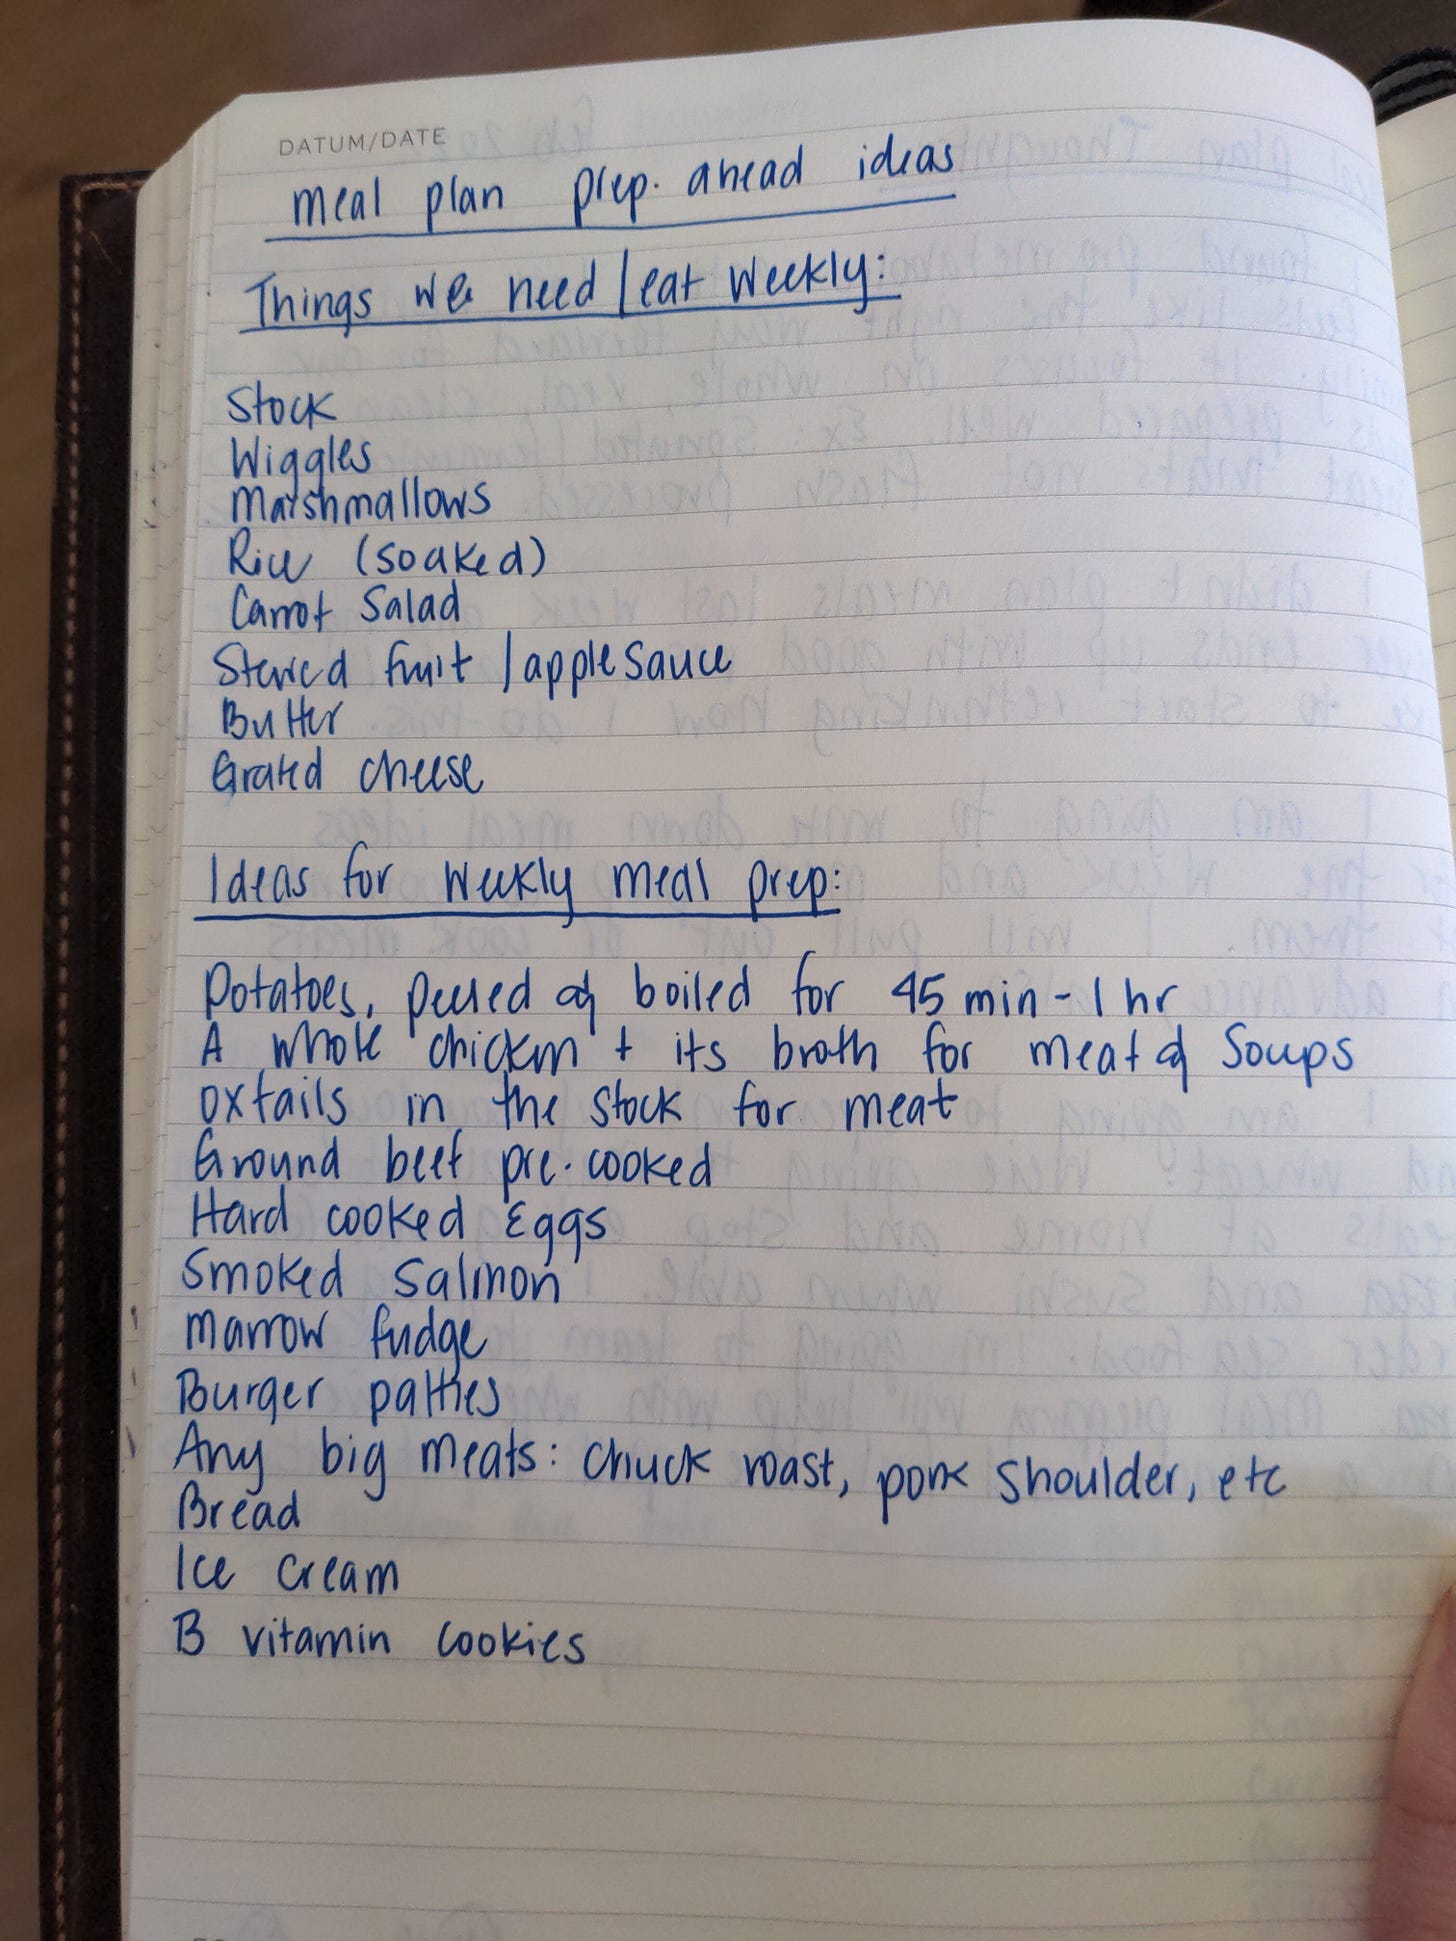 DATUM/DATE
meal plan prep. ahead ideas
Things we need/eat weekly:
Stock
Wiggles
Marshmallows
Rice (soaked)
Carrot Salad
Stewed fruit/applesauce
Butter
Grated cheese
Ideas for weekly meal prep:
Potatoes, peeled & boiled for 45 min - 1 hr
A whole chicken + its broth for meat & Soups
oxtails in the stock for meat
Ground beef pre-cooked
Hard cooked Eggs
Smoked Salmon
Marrow fudge
Burger patties
Any big meats: chuck roast, pork shoulder, etc
Bread
Ice cream
B vitamin cookies